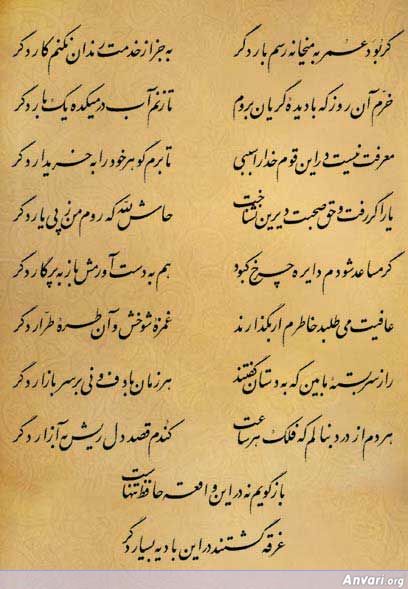 گر بود عمر به میخانه رسم بار دگر به جز از خدمت رندان نکنم کار دگر
خرم آن روز که با دیده گریان بروم تا زنم آب در میکده یک بار دگر
معرفت نیست در این قوم خدا را سببی تا برم گوهر خود را به خریدار دگر
یار اگر رفت و حق صحبت دیرین نشناخت حاش لله که روم من ز پی یار دگر
گر مساعد شودم دایره چرخ کبود هم به دست آورمش باز به پرگار دگر
عافیت می طلبد خاطرم ار بگذارند غمزه شوخش و آن طره طرار دگر
راز سربسته ما بین که به دستان گفتند هر زمان با دف و نی بر سر بازار دگر
هر دم از درد بنالم که فلک هر ساعت کندم قصد دل ریش به آزار دگر
بازگویم نه در این واقعه حافظ تنهاست
غرقه گشتند در این بادیه بسیار دگر
Anvari.org